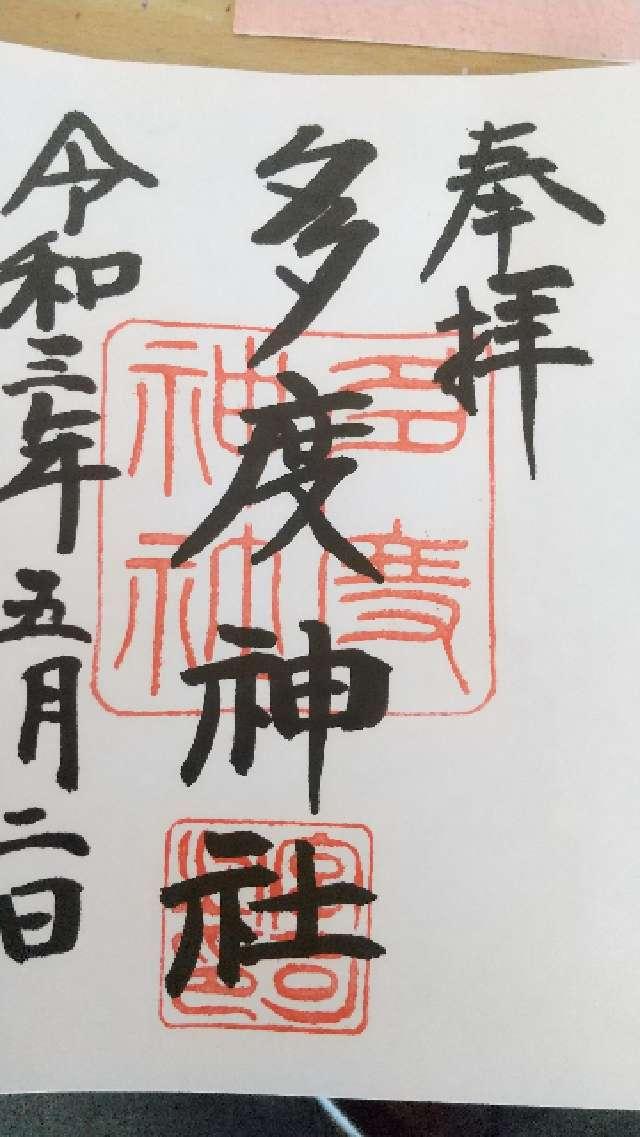 奉拝
多度神社
令和三年五月二日
多度
神社